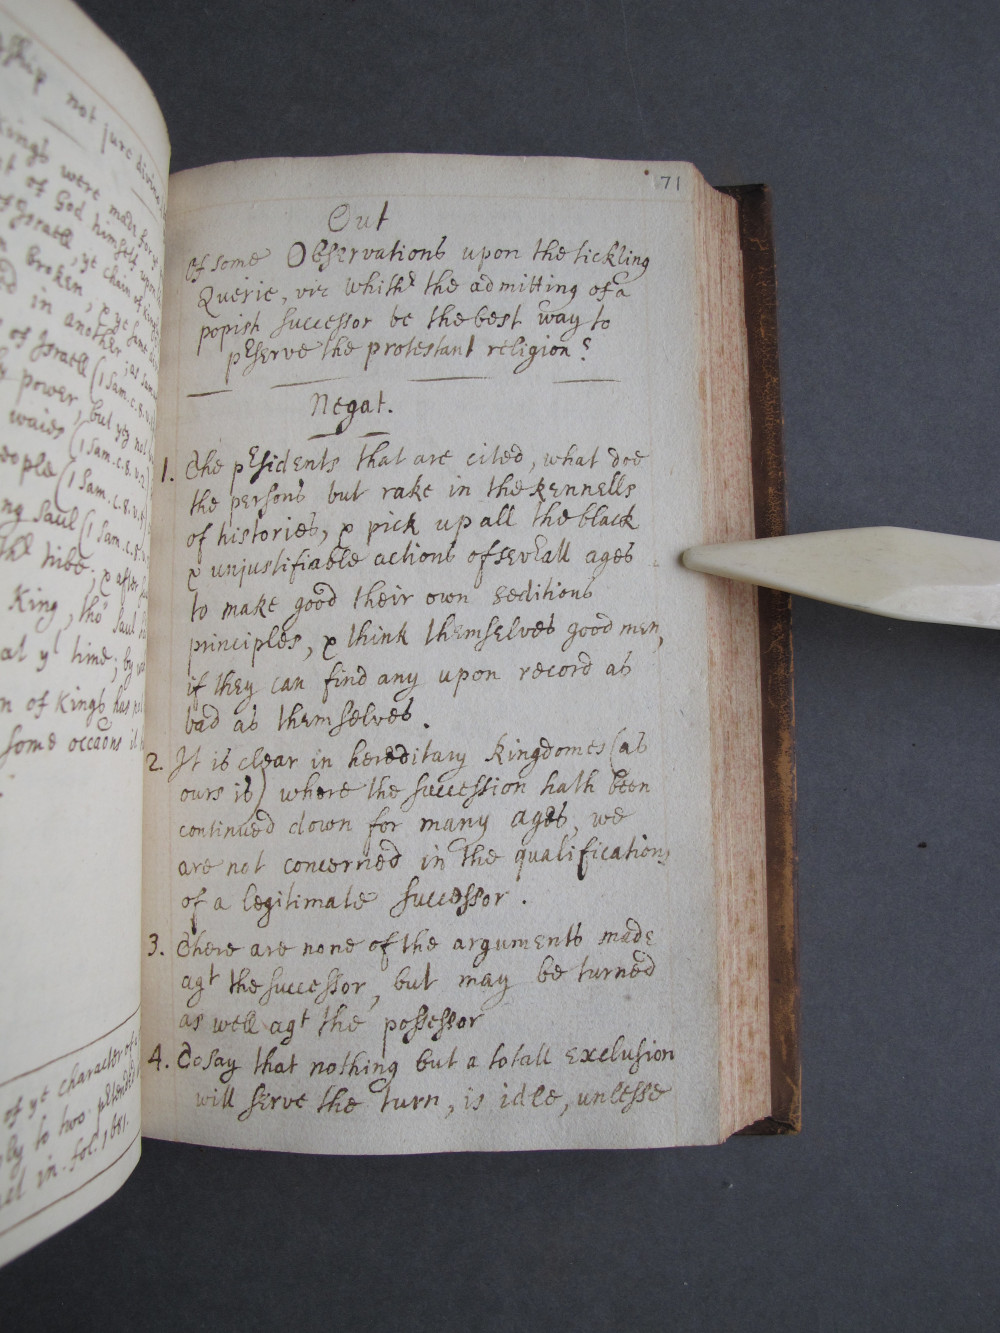 ship not jure divino
Kings were made for ye
t of God himself upon
of Israell; ye chain of Kings
n broken; & ye same
d in another; as
s of Israell (1 Sam. c. 8. v.
power, but yet not
waies (1 Sam. c. 8. v. 2
eople (1 Sam. c. 8. v. 4
ng Saul (1 Sam. c. 8. v.
the tribe; & after
King, tho' Saul
at yt time; by
n of Kings has
some occaōns it
of ye character of
ly to two ptended
in-fol. 1681.
71
Out
Of some Observations upon the tickling
Querie, viz whithr the admitting of a
popish successor be the best way to
pserve the protestant religion?
Negat.
1. The psidents that are cited, what doe
the persons but rake in the kennells
of histories, & pick up all the black
& unjustifiable actions of sevrall ages
to make good their own seditious
principles, & think themselves good men,
if they can find any upon record as
bad as themselves.
2. It is clear in hereditary kingdomes (as
ours is) where the succession hath been
continued down for many ages, we
are not concerned in the qualifications
of a legitimate successor.
3. There are none of the arguments made
agt the successor, but may be turned
as well agt the possessor
4. To say that nothing but a totall exclusion
will serve the turn, is idle, unlesse